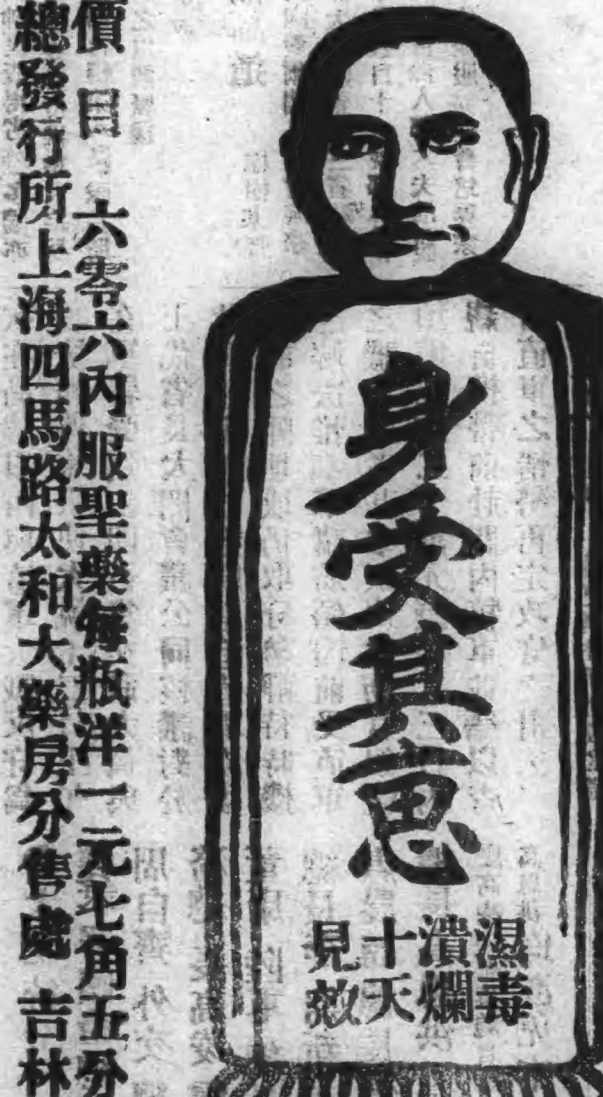 身受其惠
濕毒
潰爛
十天
見效
價目 六零六內服聖藥每瓶洋一元七角五分
總發行所上海四馬路太和大藥房分售處 吉林